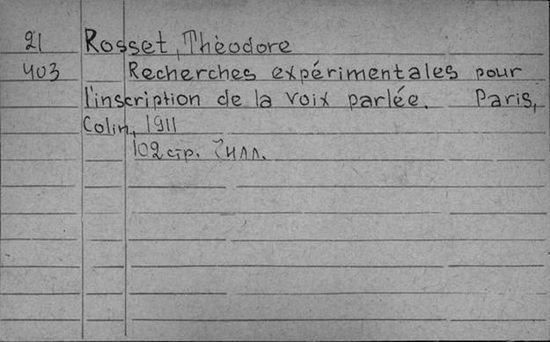 21 Rosset, Thèodore
403 Recherches expérimentales pour
l'inscription de la voix parlée. Paris,
Colin, 1911
102 стр. илл.